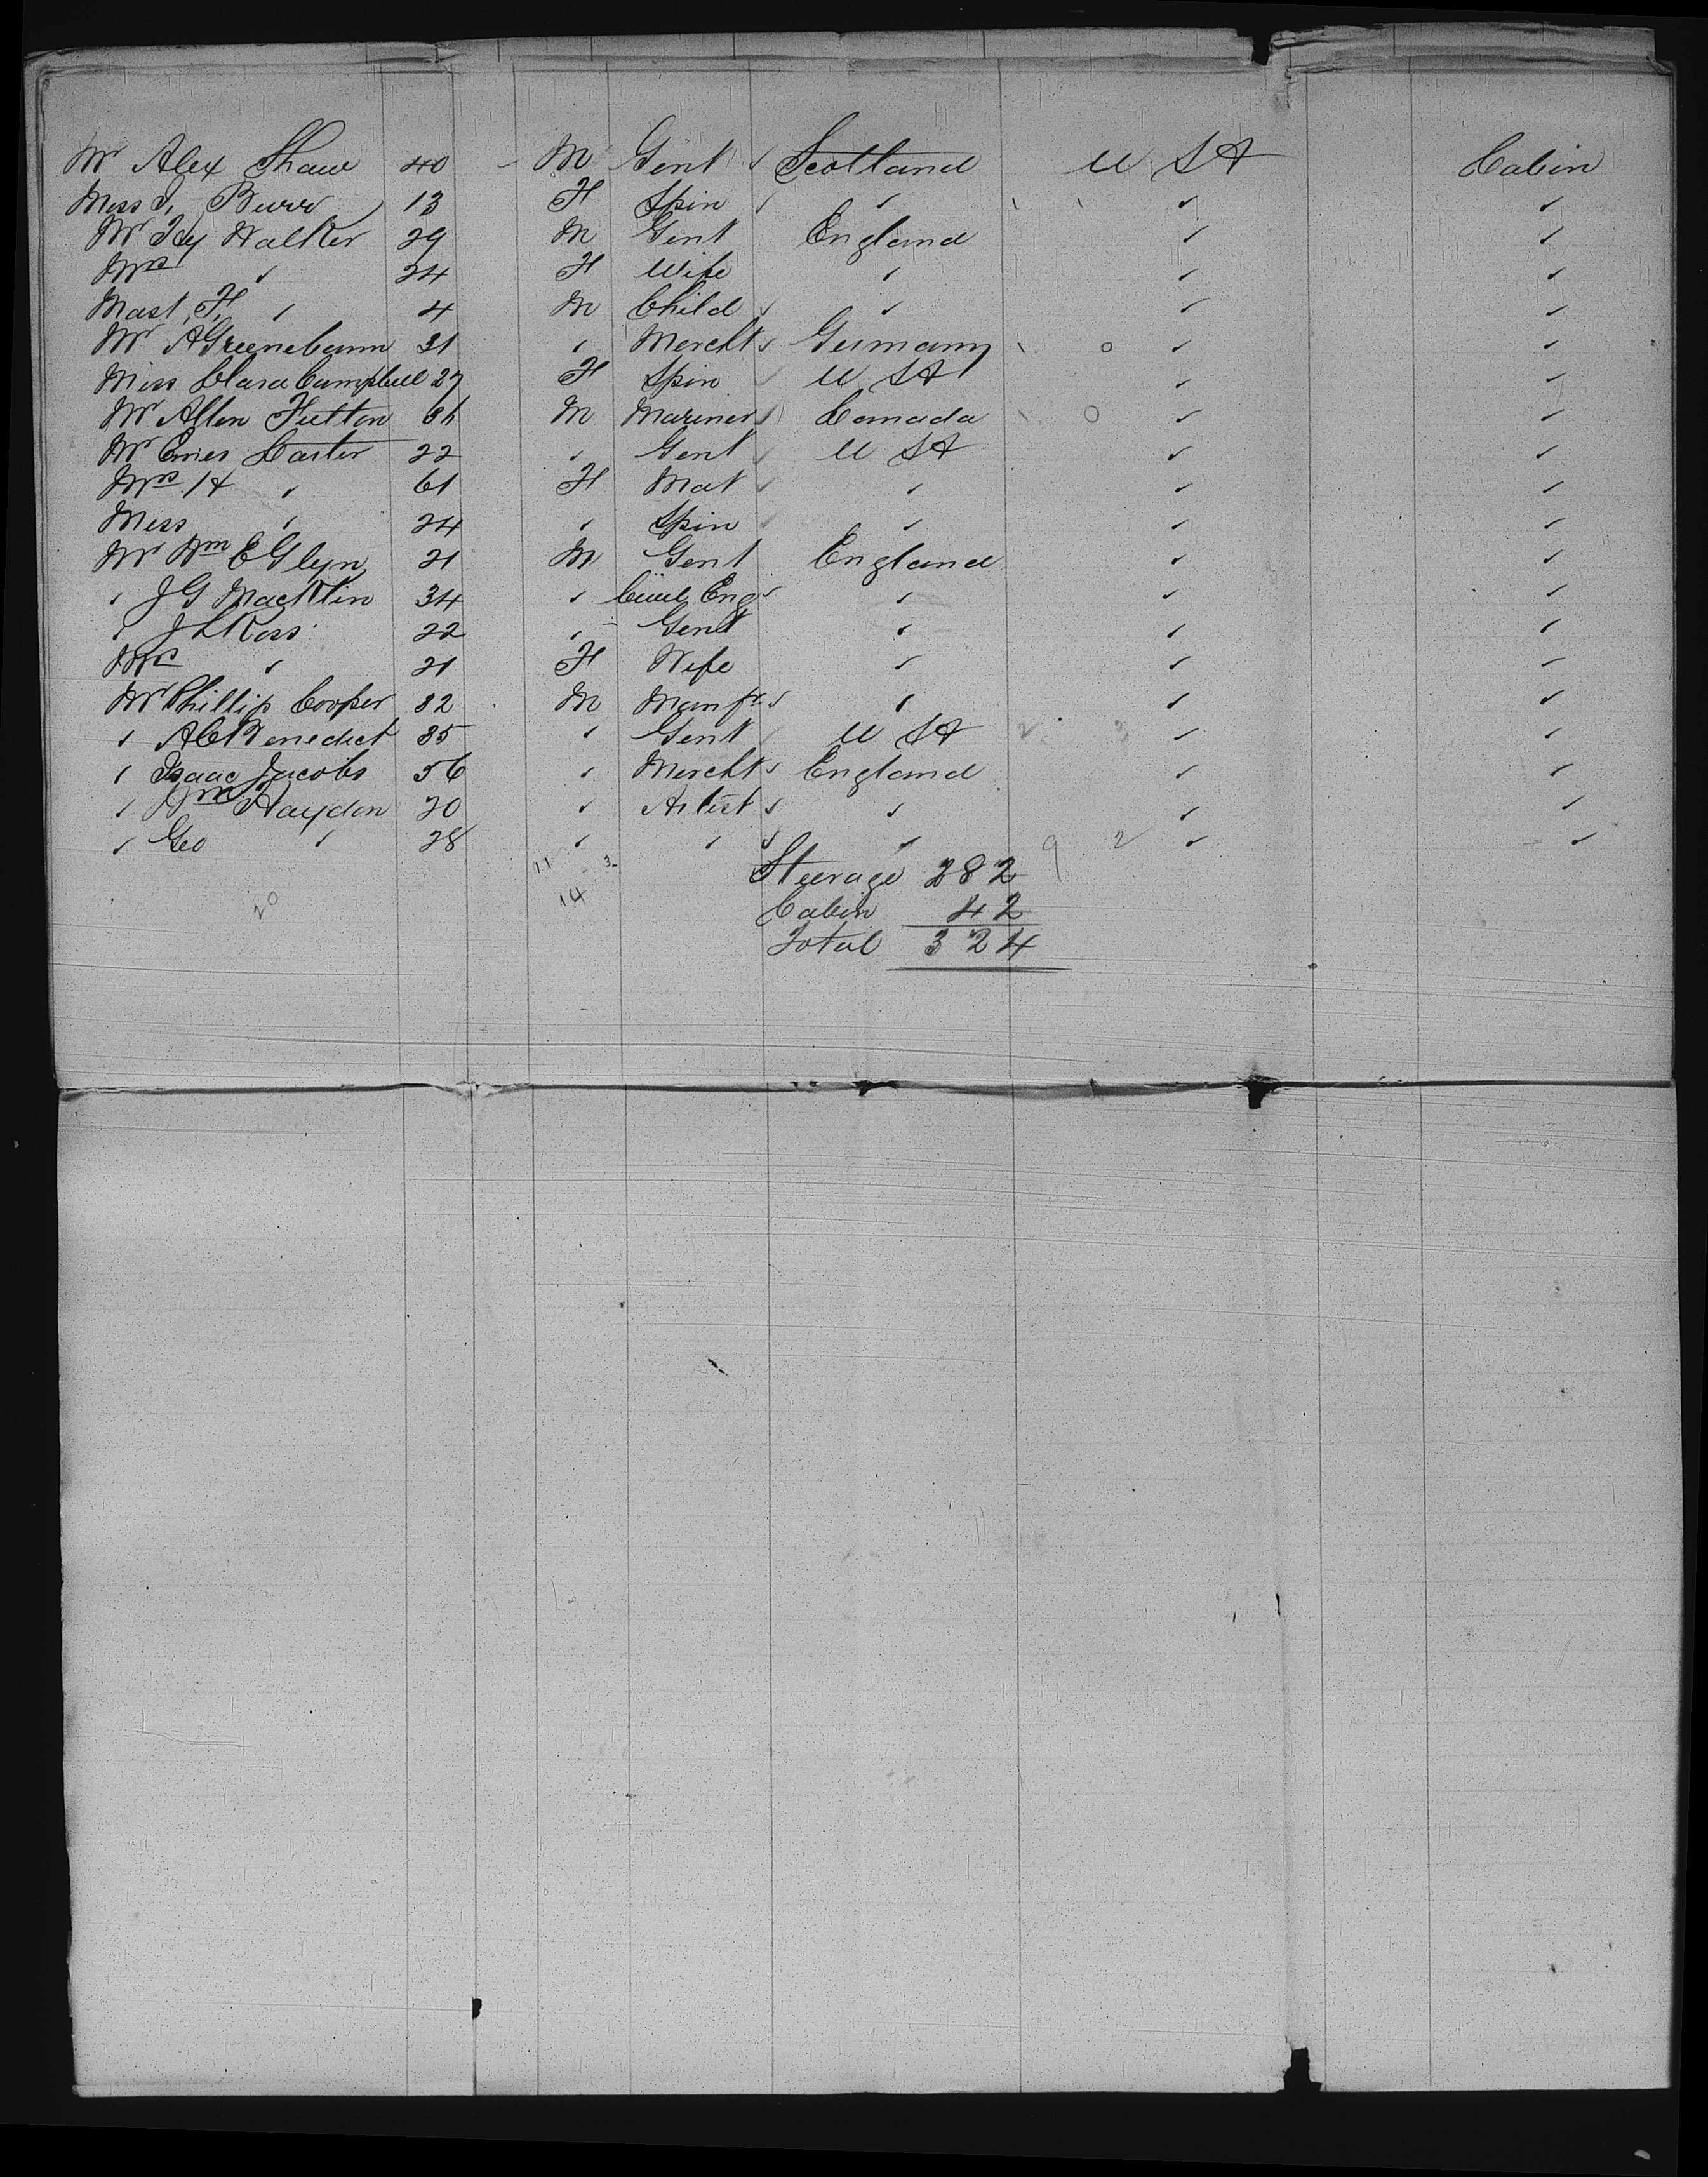 Mr Alex Shaw 40 M Gent Scotland U S A Cabin
Miss J, Burr 13 F Spin " " "
Mr Walker 29 M Gent England " "
Mrs " 24 F Wife " " "
Mast, H, " 4 M Child " " "
Mr A Greenebaum 31 " Mercht Germany 0 " "
Miss Clara Campbell 27 F Spin U S A " "
Mr Allen Fulton M Mariner Canada 0 " "
Mr Carter 22 " Gent U S A " "
Mrs " 61 F Mat " " "
Miss " 24 " Spin " " "
Mr Wm E Glyn 21 M Gent England " "
" J G Macklin 34 " Civil Eng " " "
" J L Ross 22 " Gent " " "
Mrs " 21 F Wife " " "
Mr Phillip Cooper 32 M Manfr " " "
" A C Benedict 35 " Gent U S A 2 3 " "
" Isaac Jacobs 56 " Mercht England " "
" Wm Haydon 20 " Artist " " "
" Geo " 28 " " " 9 2 " "
11 3 Steerage 282
20 14 Cabin 42
Total 324